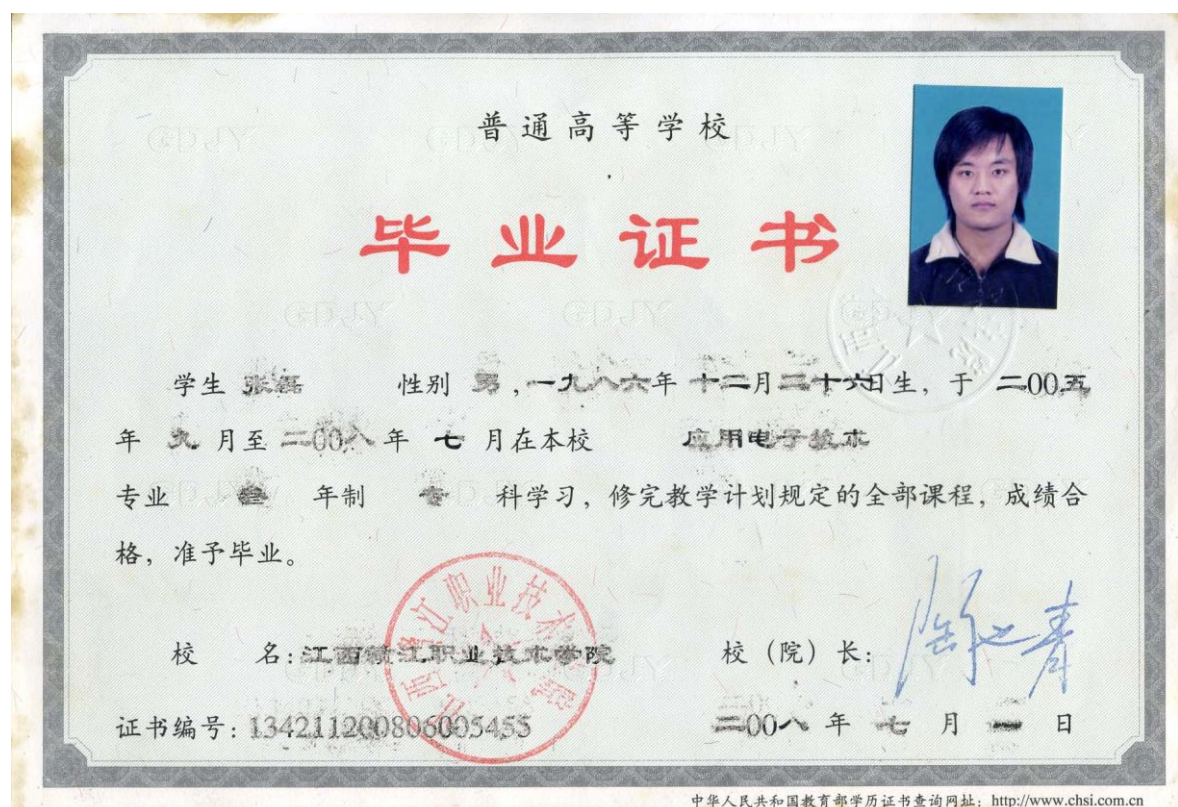 普通高等学校
毕业证书
学生 张磊 性别 男，一九八六年 十二月二十六日生，于 二00五
年 九 月至 二00八 年 七 月在本校 应用电子技术
专业 叁 年制 专 科学习，修完教学计划规定的全部课程，成绩合
格，准予毕业。
校 名：江西赣江职业技术学院 校（院）长：
证书编号：134211200806005455 二00八 年 七 月 一 日
江西赣江职业技术学院
中华人民共和国教育部学历证书查询网址：http://www.chsi.com.cn